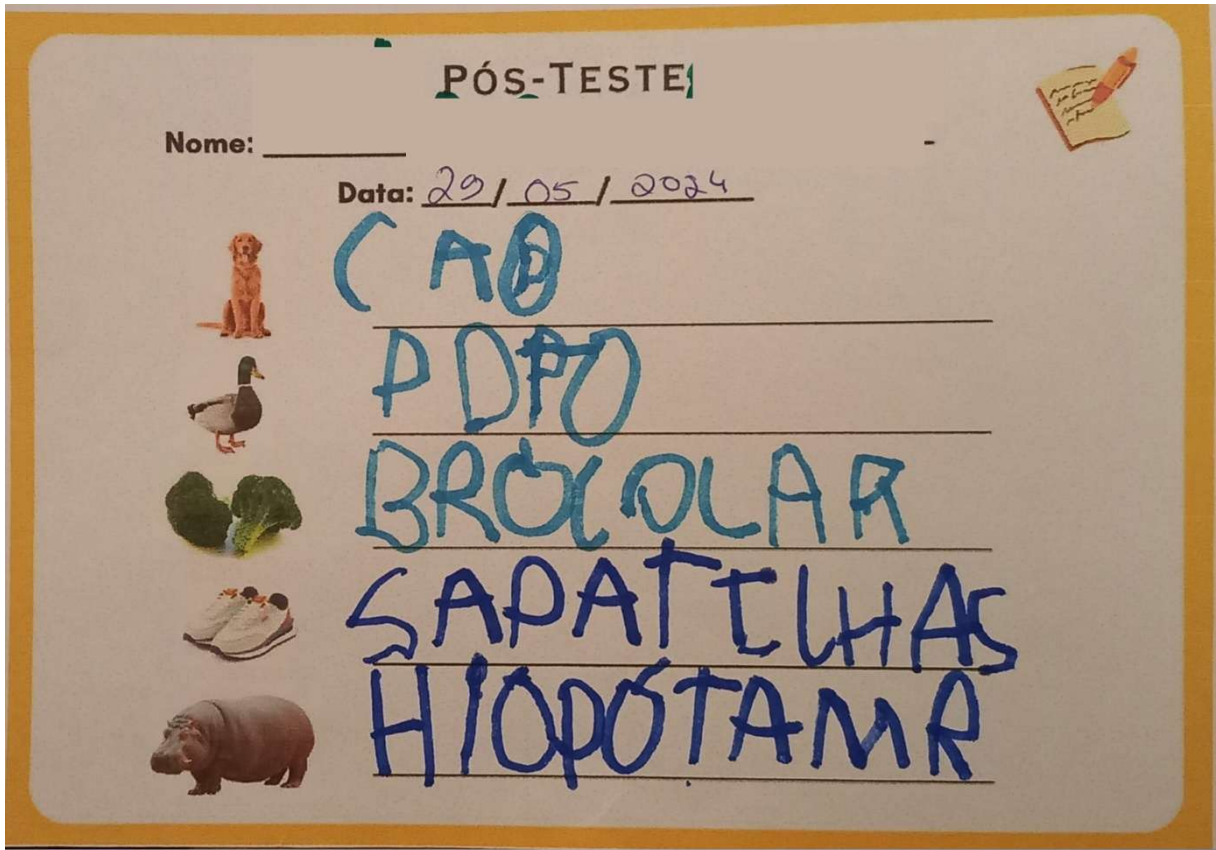 PÓS-TESTE
Nome:
Data: 29/05/2024
CAO
PDPO
BROCOLAR
SAPATILHAS
HIOPÓTAMR